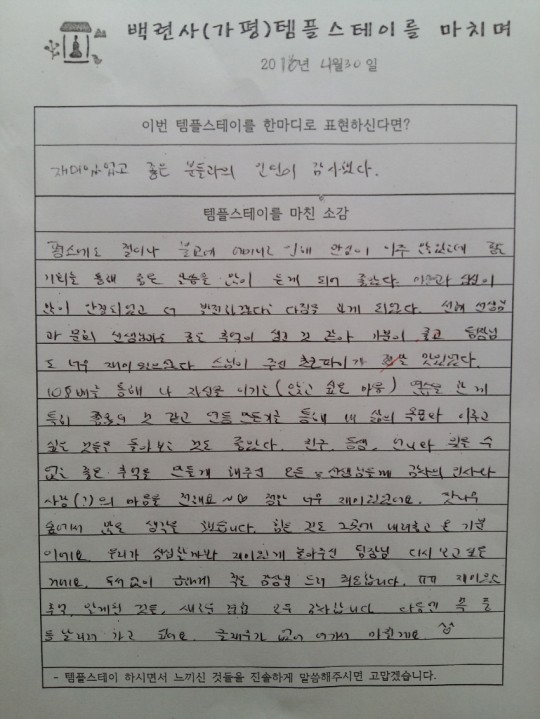 백련사(가평)템플스테이를 마치며
2018년 4월30일
이번 템플스테이를 한마디로 표현하신다면?
재미있었고 좋은 분들과의 인연이 감사했다.
템플스테이를 마친 소감
평소에도 절이나 불교에 대해 아주 많았는데
기회를 통해 좋은 말씀을 많이 듣게 되어 좋았다. 마음과 심신이
많이 안정되었고 더 다짐을 하게 되었다. 선생님
과 선생님과도 좋은 추억이 생긴 것 같아 기분이 좋고 팀장님
도 너무 재미있으셨다 스님이 주신 초코파이가 정말 맛있었다.
108배를 통해 나 자신을 이기는(않고 싶은 마음) 연습을 한 게
특히 좋았던 것 같고 연등 만들기를 통해 내 삶의 목표와 이루고
싶은 것들을 돌아보는 것도 좋았다. 친구, 동생, 언니와 잊을 수
없는 좋은 추억을 만들게 해주신 모든 선생님들께 감사의 인사와
사랑(?)의 마음을 전해요 ~ 정말 너무 재미있었어요. 잣나무
숲에서 많은 생각을 했습니다. 힘든 것도 그곳에 내려놓고 온 기분
이에요. 우리가 심심할까봐 재미있게 놀아주신 팀장님 다시 보고 싶을
거에요. 죄송합니다. ㅠㅠ 재미있는
추억, 알게된 것들, 새로운 모두 감사합니다 다음엔 꼭
가고 싶어요. 글재주가 없어 여기서 마칠게요.
- 템플스테이 하시면서 느끼신 것들을 진솔하게 말씀해주시면 고맙겠습니다.